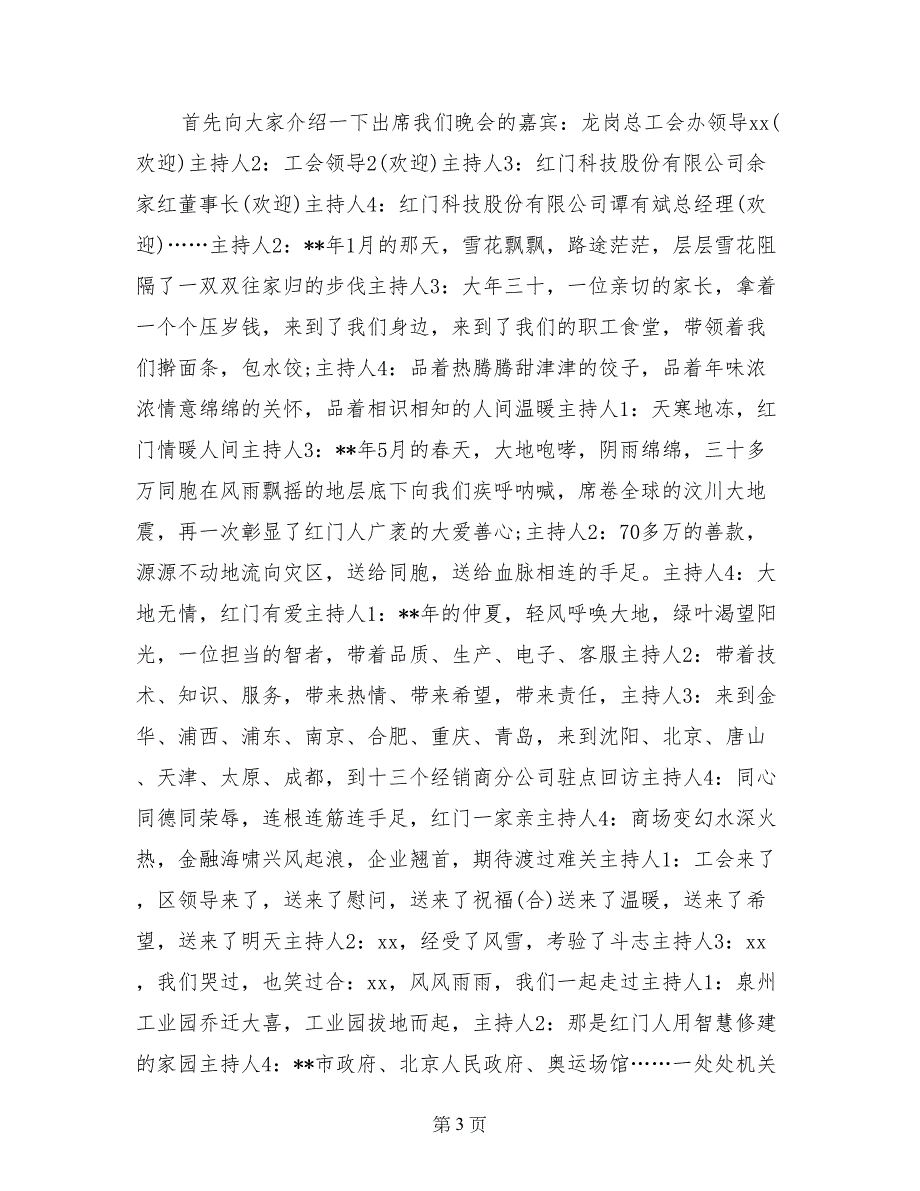 首先向大家介绍一下出席我们晚会的嘉宾：龙岗总工会办领导xx(
欢迎)主持人2：工会领导2(欢迎)主持人3：红门科技股份有限公司余
家红董事长(欢迎)主持人4：红门科技股份有限公司谭有斌总经理(欢
迎)……主持人2：**年1月的那天，雪花飘飘，路途茫茫，层层雪花阻
隔了一双双往家归的步伐主持人3：大年三十，一位亲切的家长，拿着
一个个压岁钱，来到了我们身边，来到了我们的职工食堂，带领着我
们擀面条，包水饺;主持人4：品着热腾腾甜津津的饺子，品着年味浓
浓情意绵绵的关怀，品着相识相知的人间温暖主持人1：天寒地冻，红
门情暖人间主持人3：**年5月的春天，大地咆哮，阴雨绵绵，三十多
万同胞在风雨飘摇的地层底下向我们疾呼呐喊，席卷全球的汶川大地
震，再一次彰显了红门人广袤的大爱善心;主持人2：70多万的善款，
源源不动地流向灾区，送给同胞，送给血脉相连的手足。主持人4：大
地无情，红门有爱主持人1：**年的仲夏，轻风呼唤大地，绿叶渴望阳
光，一位担当的智者，带着品质、生产、电子、客服主持人2：带着技
术、知识、服务，带来热情、带来希望，带来责任，主持人3：来到金
华、浦西、浦东、南京、合肥、重庆、青岛，来到沈阳、北京、唐山
、天津、太原、成都，到十三个经销商分公司驻点回访主持人4：同心
同德同荣辱，连根连筋连手足，红门一家亲主持人4：商场变幻水深火
热，金融海啸兴风起浪，企业翘首，期待渡过难关主持人1：工会来了
，区领导来了，送来了慰问，送来了祝福(合)送来了温暖，送来了希
望，送来了明天主持人2：xx，经受了风雪，考验了斗志主持人3：xx
，我们哭过，也笑过合：xx，风风雨雨，我们一起走过主持人1：泉州
工业园乔迁大喜，工业园拔地而起，主持人2：那是红门人用智慧修建
的家园主持人4：**市政府、北京人民政府、奥运场馆……一处处机关
第 3 页